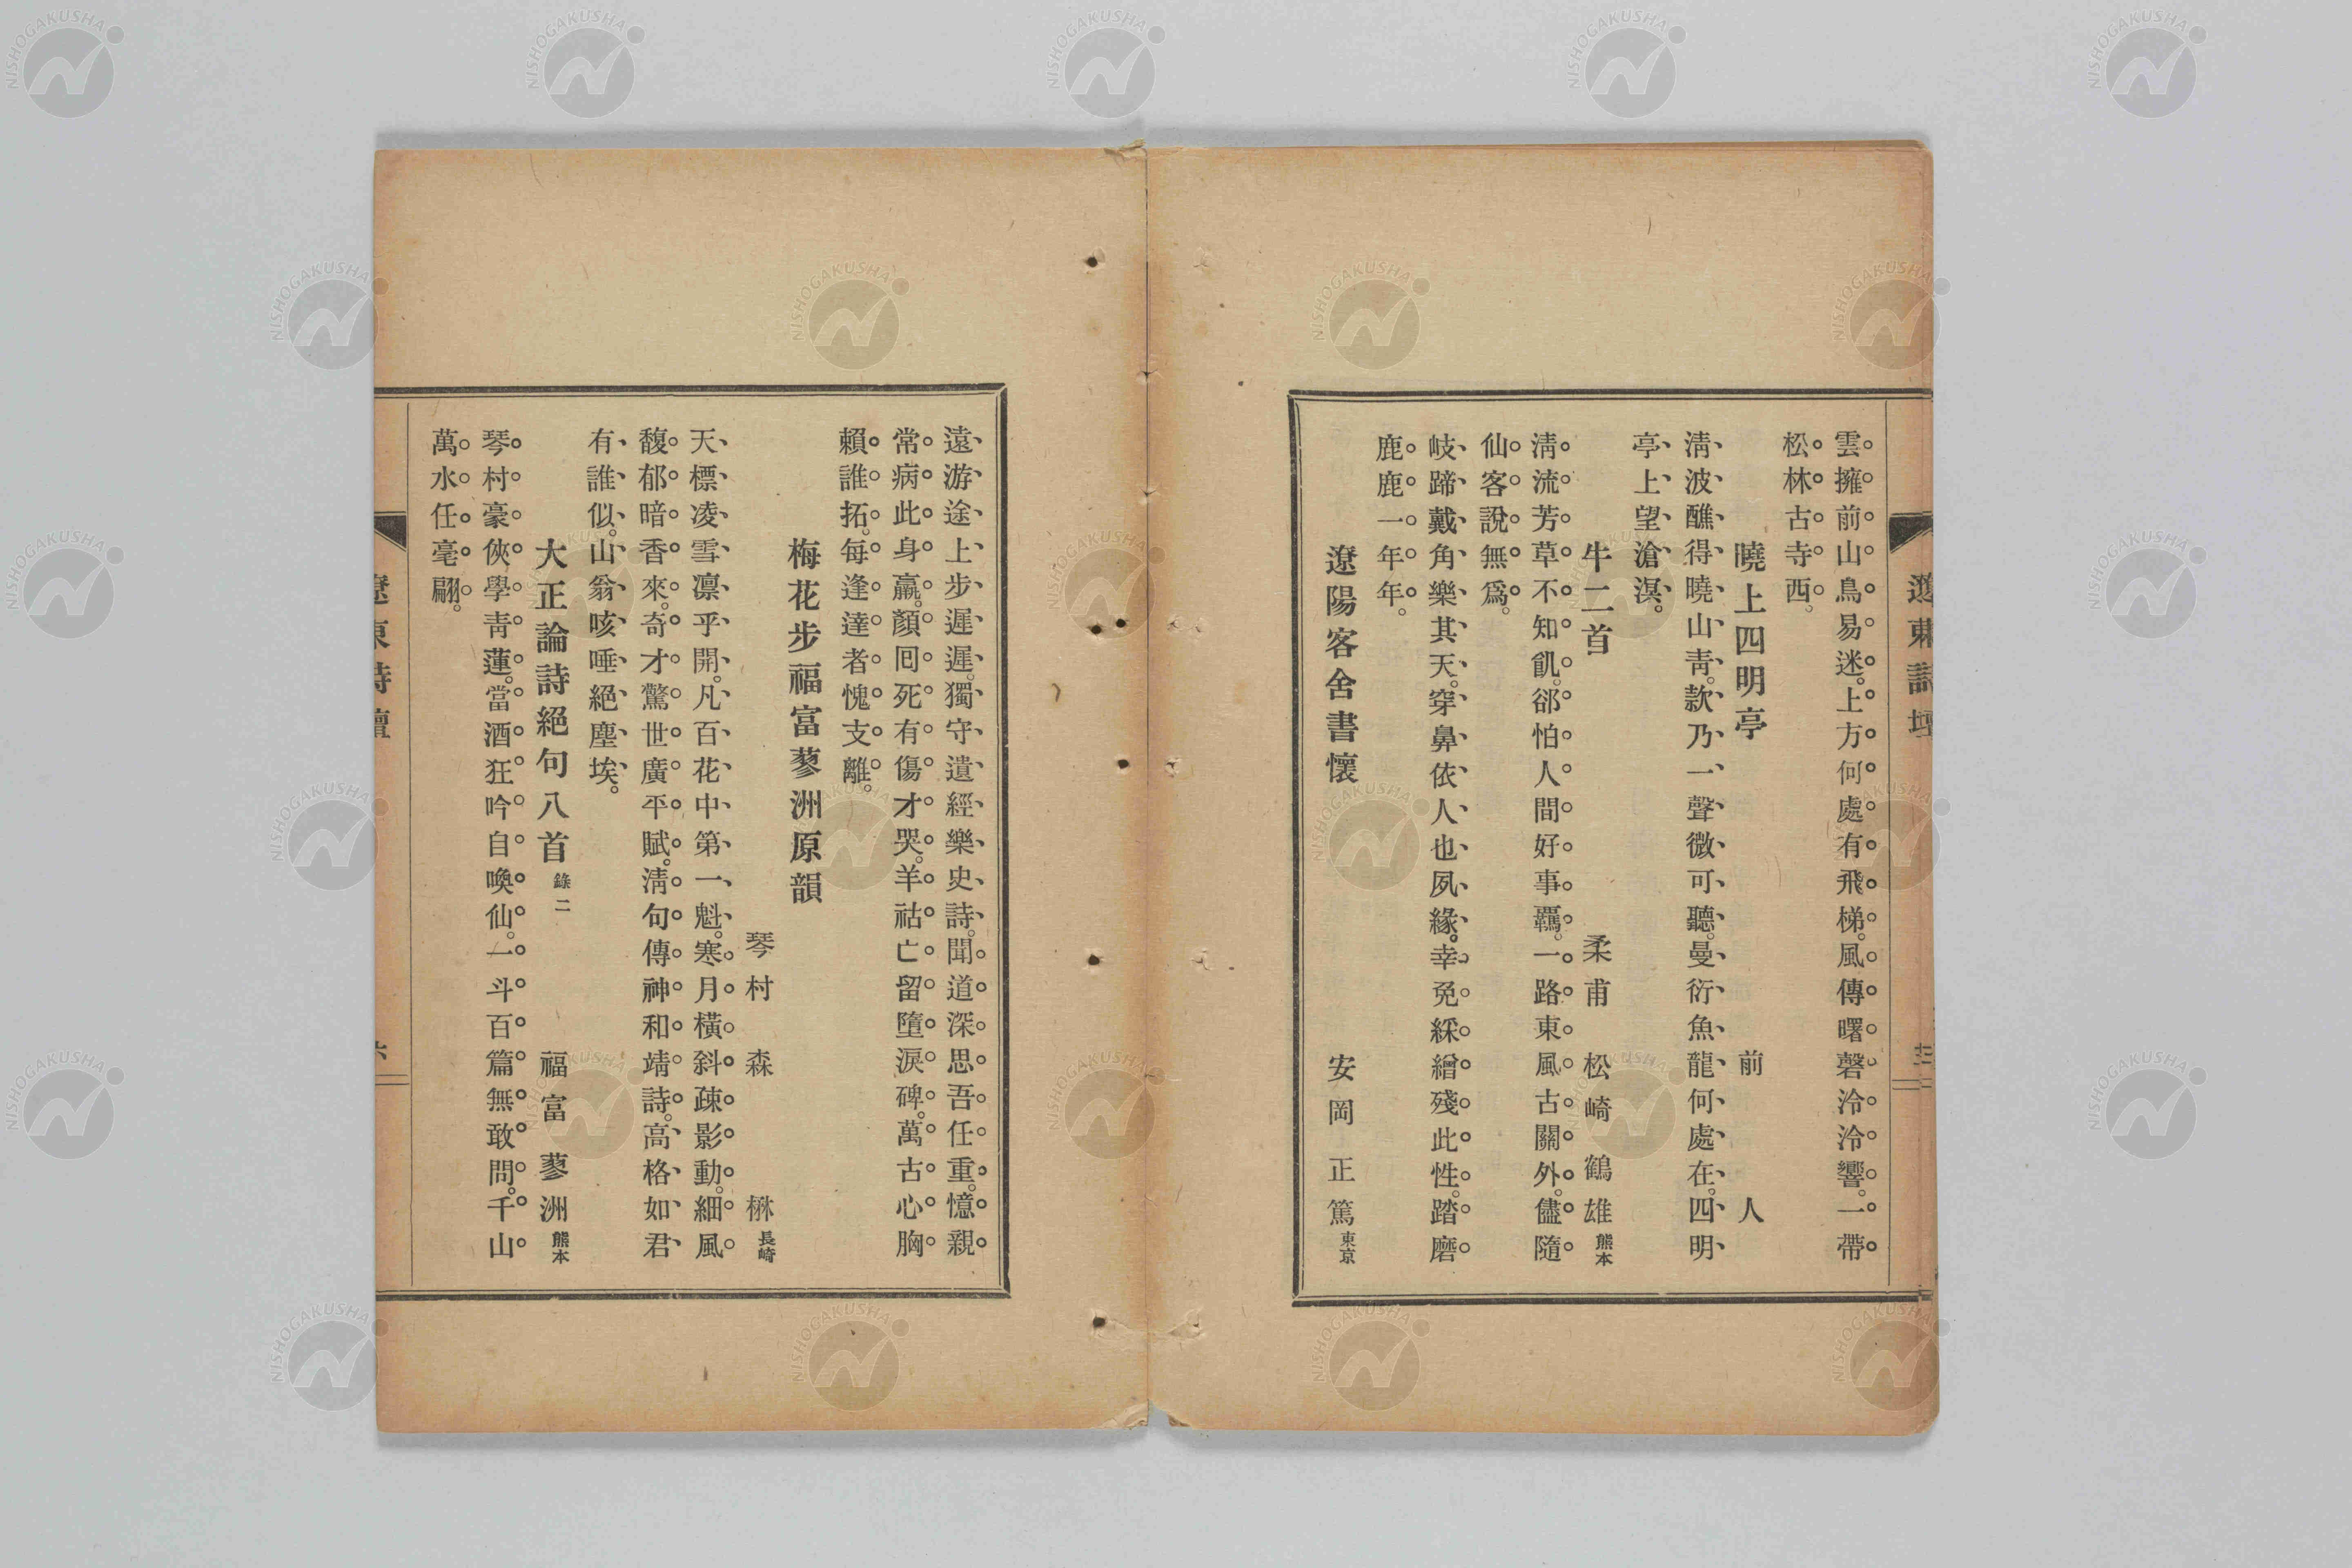 遼東詩壇
雲擁前山鳥易迷。上方何處有飛梯。風傳曙磬泠泠響。一帶
松林古寺西。
曉上四明亭 前人
淸波醮得曉山靑。款乃一聲微可聽。曼衍魚龍何處在。四明
亭上望滄溟。
牛二首 柔甫 松崎鶴雄 熊本
淸流芳草不知飢。郤怕人間好事羈。一路東風古關外。儘隨
仙客說無爲。
岐蹄戴角樂其天。穿鼻依人也夙緣。幸免綵繒殘此性。踏磨
鹿鹿一年年。
遼陽客舍書懷 安岡正篤 東京
遠游途上步遲遲。獨守遺經樂史詩。聞道深思吾任重。憶親
常病此身羸。顏囘死有傷才哭。羊祜亡留墮淚碑。萬古心胸
賴誰拓。每逢達者愧支離。
梅花步福富蓼洲原韻
琴村 森 楙 長崎
天標凌雪凛乎開。凡百花中第一魁。寒月橫斜疎影動。細風
馥郁暗香來。奇才驚世廣平賦。淸句傳神和靖詩。高格如君
有誰似。山翁咳唾絕塵埃。
大正論詩絕句八首 錄二 福富蓼洲 熊本
琴村豪俠學靑蓮。當酒狂吟自喚仙。一斗百篇無敢問。千山
萬水任毫翩。
遼東詩壇
六
NISHOGAKUSHA